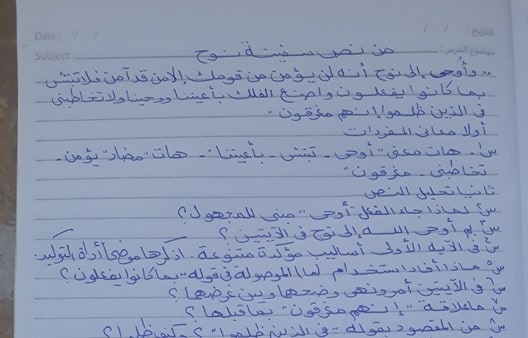 التاريخ: / /
Date: / /
موضوع الدرس:
Subject:
من نص سفينة نوح
"وأُوحى إلى نوح أنه لن يؤمن من قومك إلا من قد آمن فلا تبتئس
بما كانوا يفعلون واصنع الفلك بأعيننا ووحينا ولا تخاطبنى
فى الذين ظلموا إنهم مغرقون"
أولا معانى المفردات
س١- هات معنى "أوحى - تبتئس - بأعيننا" - هات "مضاد" يؤمن -
تخاطبنى - مغرقون"
ثانيا تحليل النص
س١ لماذا جاء الفعل "أوحى" مبنى للمجهول؟
س٢ بم أوحى الله إلى نوح فى الآيتين؟
س٣ فى الآية الأولى أساليب مؤكدة متنوعة. اذكرها موضحا أداة التوكيد.
س٤ ماذا أفاد استخدام (ما) الموصولة فى قوله "بما كانوا يفعلون"؟
س٥ فى الآيتين أمر ونهى وضحها وبين غرضها؟
س٦ ما علاقة "إنهم مغرقون" بما قبلها؟
س٧ من المقصود بقوله "فى الذين ظلموا"؟ وكيف ظلموا؟